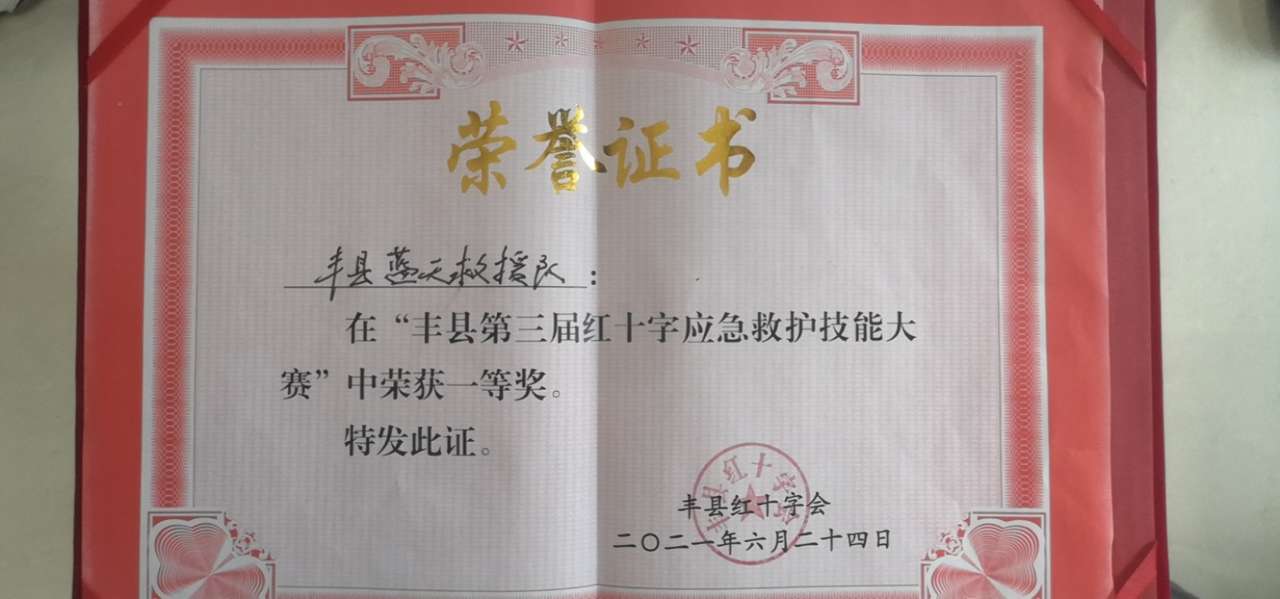 荣誉证书
丰县蓝天救援队：
在“丰县第三届红十字应急救护技能大
赛”中荣获一等奖。
特发此证。
丰县红十字会
丰县红十字会
二〇二一年六月二十四日